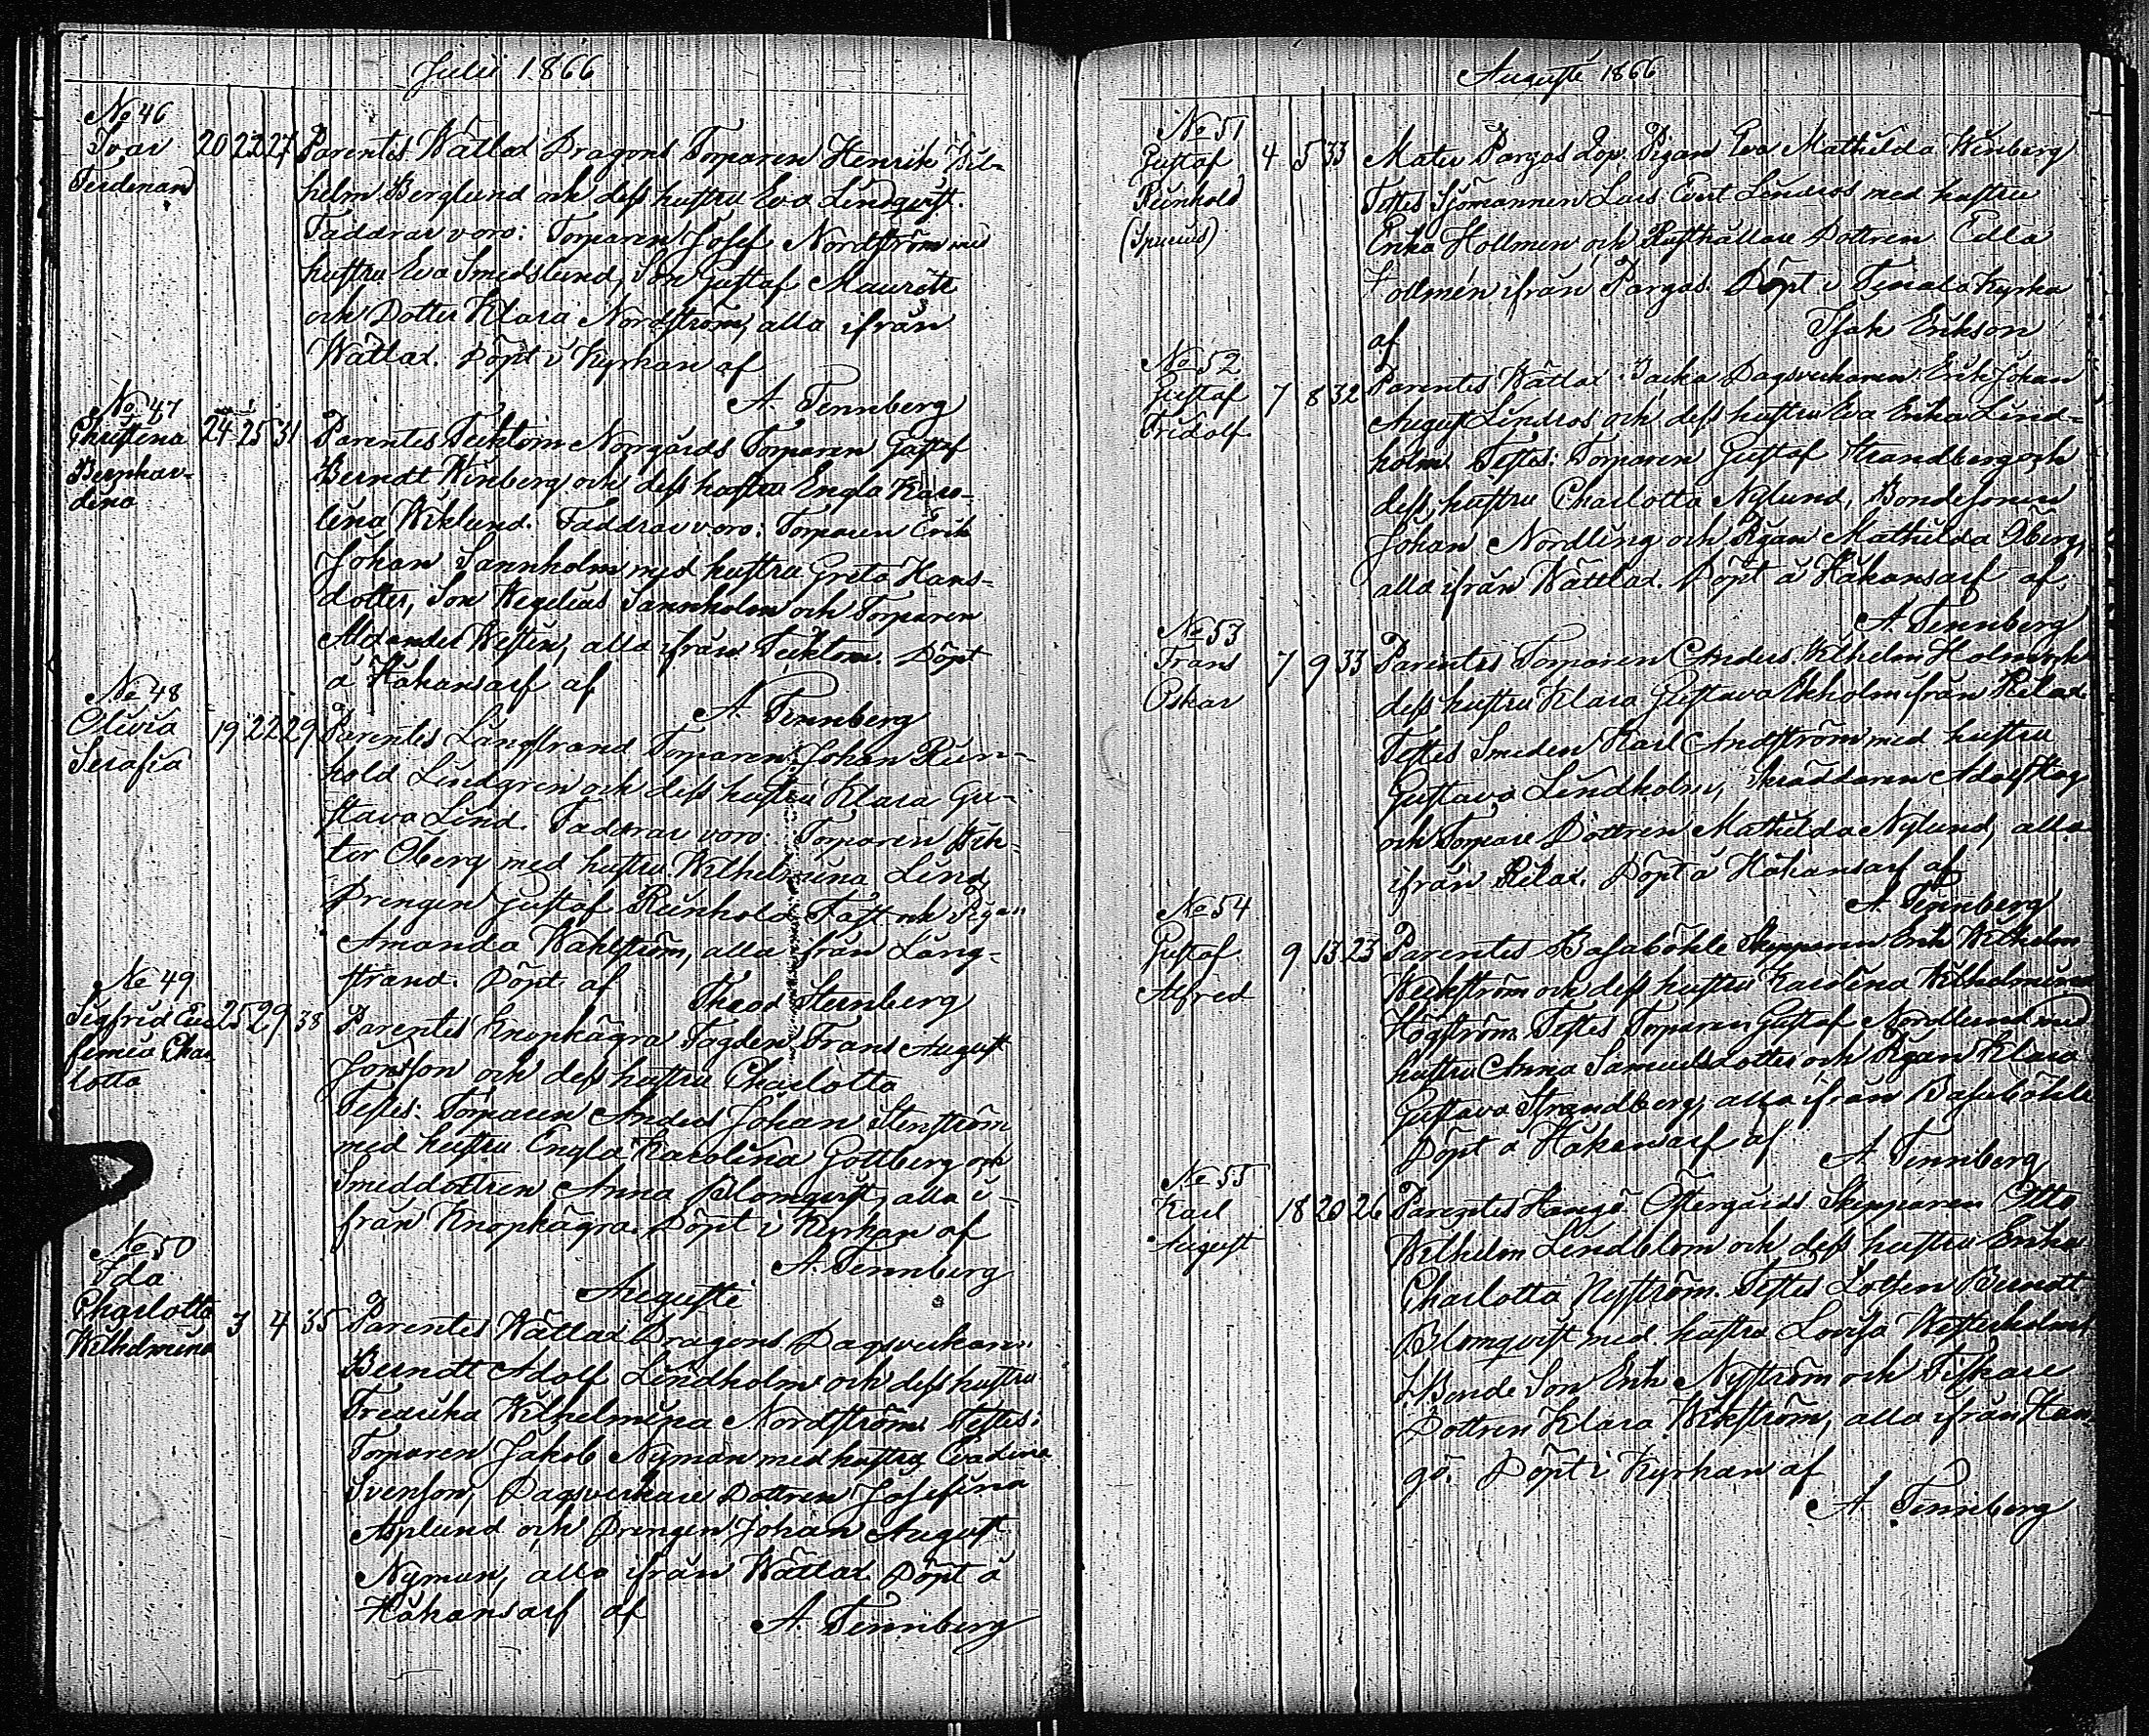 Julii 1866
No 46
Ivar
Ferdinand
20 22 27
Parentes Wättlax Dragons Torparen Henrik Wil-
helm Berglund och dess hustru Eva Lindqvist.
Faddrar voro: Torparen Josef Nordström med
hustru Eva Smedslund, Son Gustaf Mauritz
och Dotter Klara Nordström, alla ifrån
Wättlax. Döpt i Kyrkan af
A. Tennberg
No 47
Christina
Bernhar-
dina
24 25 31
Parentes Tecktom Norrgårds Torparen Gustaf
Berndt Winberg och dess hustru Engla Karo-
lina Wiklund. Faddrar voro: Torparen Erik
Johan Sannholm med hustru Greta Hans-
dotter, Son Wegelius Sannholm och Torparen
Alexander Westin, alla ifrån Tecktom. Döpt
å Håkansarf af
A. Tennberg
No 48
Olivia
Serafia
19 22 29
Parentes Långstrand Torparen Johan Rein-
hold Lindgren och dess hustru Klara Gu-
stava Lind. Faddrar voro: Torparen Wik-
tor Öberg med hustru Wilhelmina Lind
Drengen Gustaf Reinhold Fast och Pigan
Amanda Wahlström, alla från Lång-
strand. Döpt af
Theod Steenberg
No 49
Sigfrid Eu-
femia Char
lotta
25 29 38
Parentes Knopkägra Fogden Frans August
Jonsson och dess hustru Charlotta
Testes: Torparen Anders Johan Stenström
med hustru Engla Karolina Gottberg och
Smeddottren Anna Blomqvist, alla i-
från Knopkägra. Döpt i Kyrkan af
A. Tennberg
Augusti
No 50
Ida
Charlotta
Wilhelmina
3 4 35
Parentes Wättlax Dragons Dagsverkaren
Berndt Adolf Lindholm och dess hustru
Fredrika Wilhelmina Nordström. Testes:
Torparen Jakob Nyman med hustru Evadina
Svenson, Dagsverkare Dottren Josefina
Asplund och Drengen Johan August
Nyman, alla ifrån Wättlax. Döpt å
Håkansarf af
A. Tennberg
Augusti 1866
No 51
Gustaf
Reinhold
(Spurius)
4 5 33
Mater Pargas Pigan Eva Mathilda Winberg
Testes Sjömannen Lars Evert Lindros med hustru
Erika Hollmen och Rusthållare Dottren Edla
Hollmén ifrån Pargas. Döpt i Tenala Kyrka
af
Isak Erikson
No 52
Gustaf
Fridolf
7 8 32
Parentes Wättlax Backa Dagsverkaren Erik Johan
August Lindros och dess hustru Eva Erika Lind-
holm. Testes: Torparen Gustaf Strandberg och
dess hustru Charlotta Nylund, Bondesonen
Johan Nordling och Pigan Mathilda Öberg,
alla ifrån Wättlax. Döpt å Håkansarf af
A. Tennberg
No 53
Frans
Oskar
7 9 33
Parentes Torparen Anders Wilhelm Holm och
dess hustru Klara Gustava Ekholm ifrån Rilax
Testes Smeden Karl Andström med hustru
Gustava Lindholm, Skräddaren Adolf Hag
och Torpare Dottren Mathilda Nylund, alla
ifrån Rilax. Döpt å Håkansarf af
A. Tennberg
No 54
Gustaf
Alfred
9 13 23
Parentes Basaböhle Skepparen Erik Wilhelm
Weckström och dess hustru Karolina Wilhelmina
Högström. Testes Torparen Gustaf Nordlund med
hustru Anna Samuelsdotter och Pigan Klara
Gustava Strandberg, alla ifrån Basaböhle
Döpt å Håkansarf af
A. Tennberg
No 55
Karl
August
18 20 26
Parentes Hangö Östergårds Skepparen Otto
Wilhelm Lindblom och dess hustru Erika
Charlotta Nyström. Testes Lotsen Berndt
Blomqvist med hustru Lovisa Westerholm
Bonde Son Erik Nyström och Fiskare
Dottren Klara Wikström, alla ifrån Han-
gö. Döpt i Kyrkan af
A. Tennberg